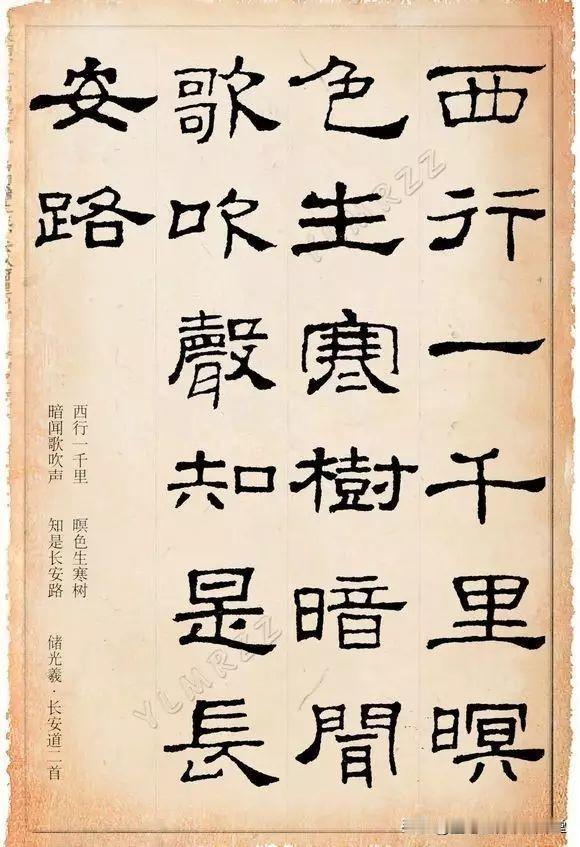 西行一千里暝
色生寒樹暗聞
歌吹聲知是長
安路
西行一千里 暝色生寒树
暗闻歌吹声 知是长安路 储光羲·长安道二首
YLMRZZ
YLMRZZ